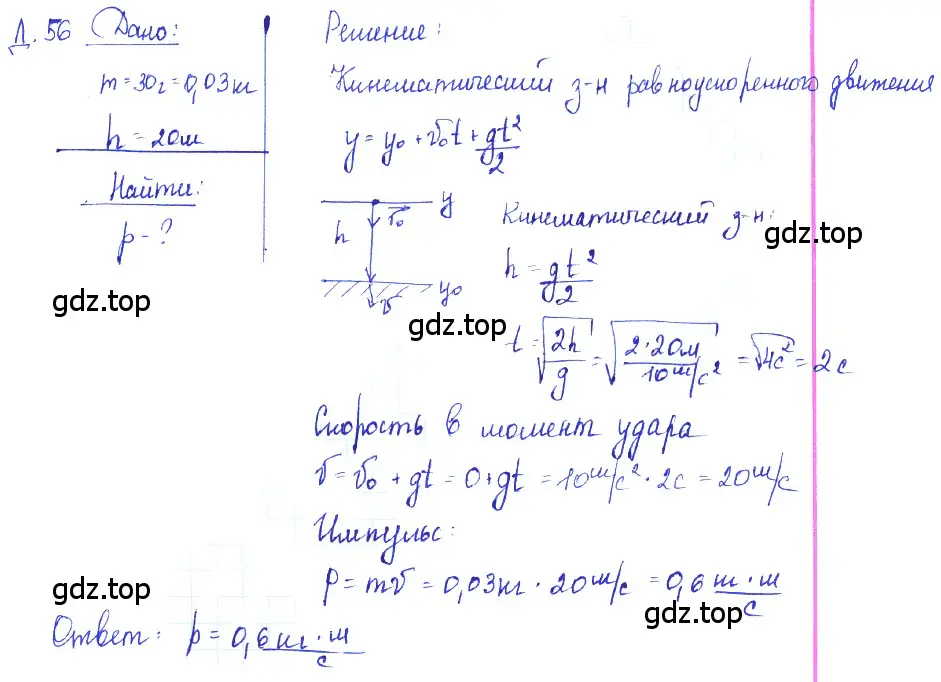 Д. 56 Дано:
m = 30г = 0,03 кг
h = 20м
Найти:
p - ?
Решение:
Кинематический з-н равноускоренного движения
y = y₀ + v₀t + gt²/2
y
h
v₀
y₀
v
Кинематический з-н:
gdz.top
h = gt²/2
gdz.top
gdz.top
t = √(2h/g) = √(2·20м/10м/с²) = √4с² = 2с
Скорость в момент удара
v = v₀ + gt = 0 + gt = 10м/с² · 2с = 20м/с
Импульс:
gdz.top
p = mv = 0,03кг · 20м/с = 0,6 м·м/с
gdz.top
Ответ: p = 0,6 кг·м/с